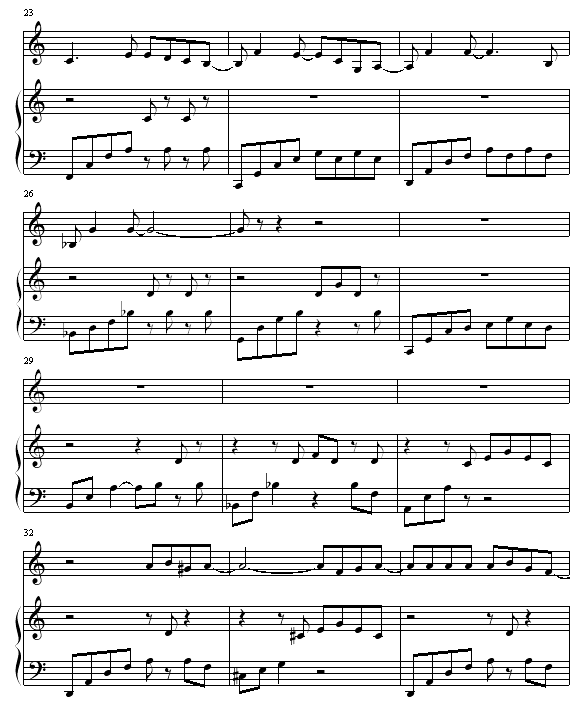 23
26
29
32